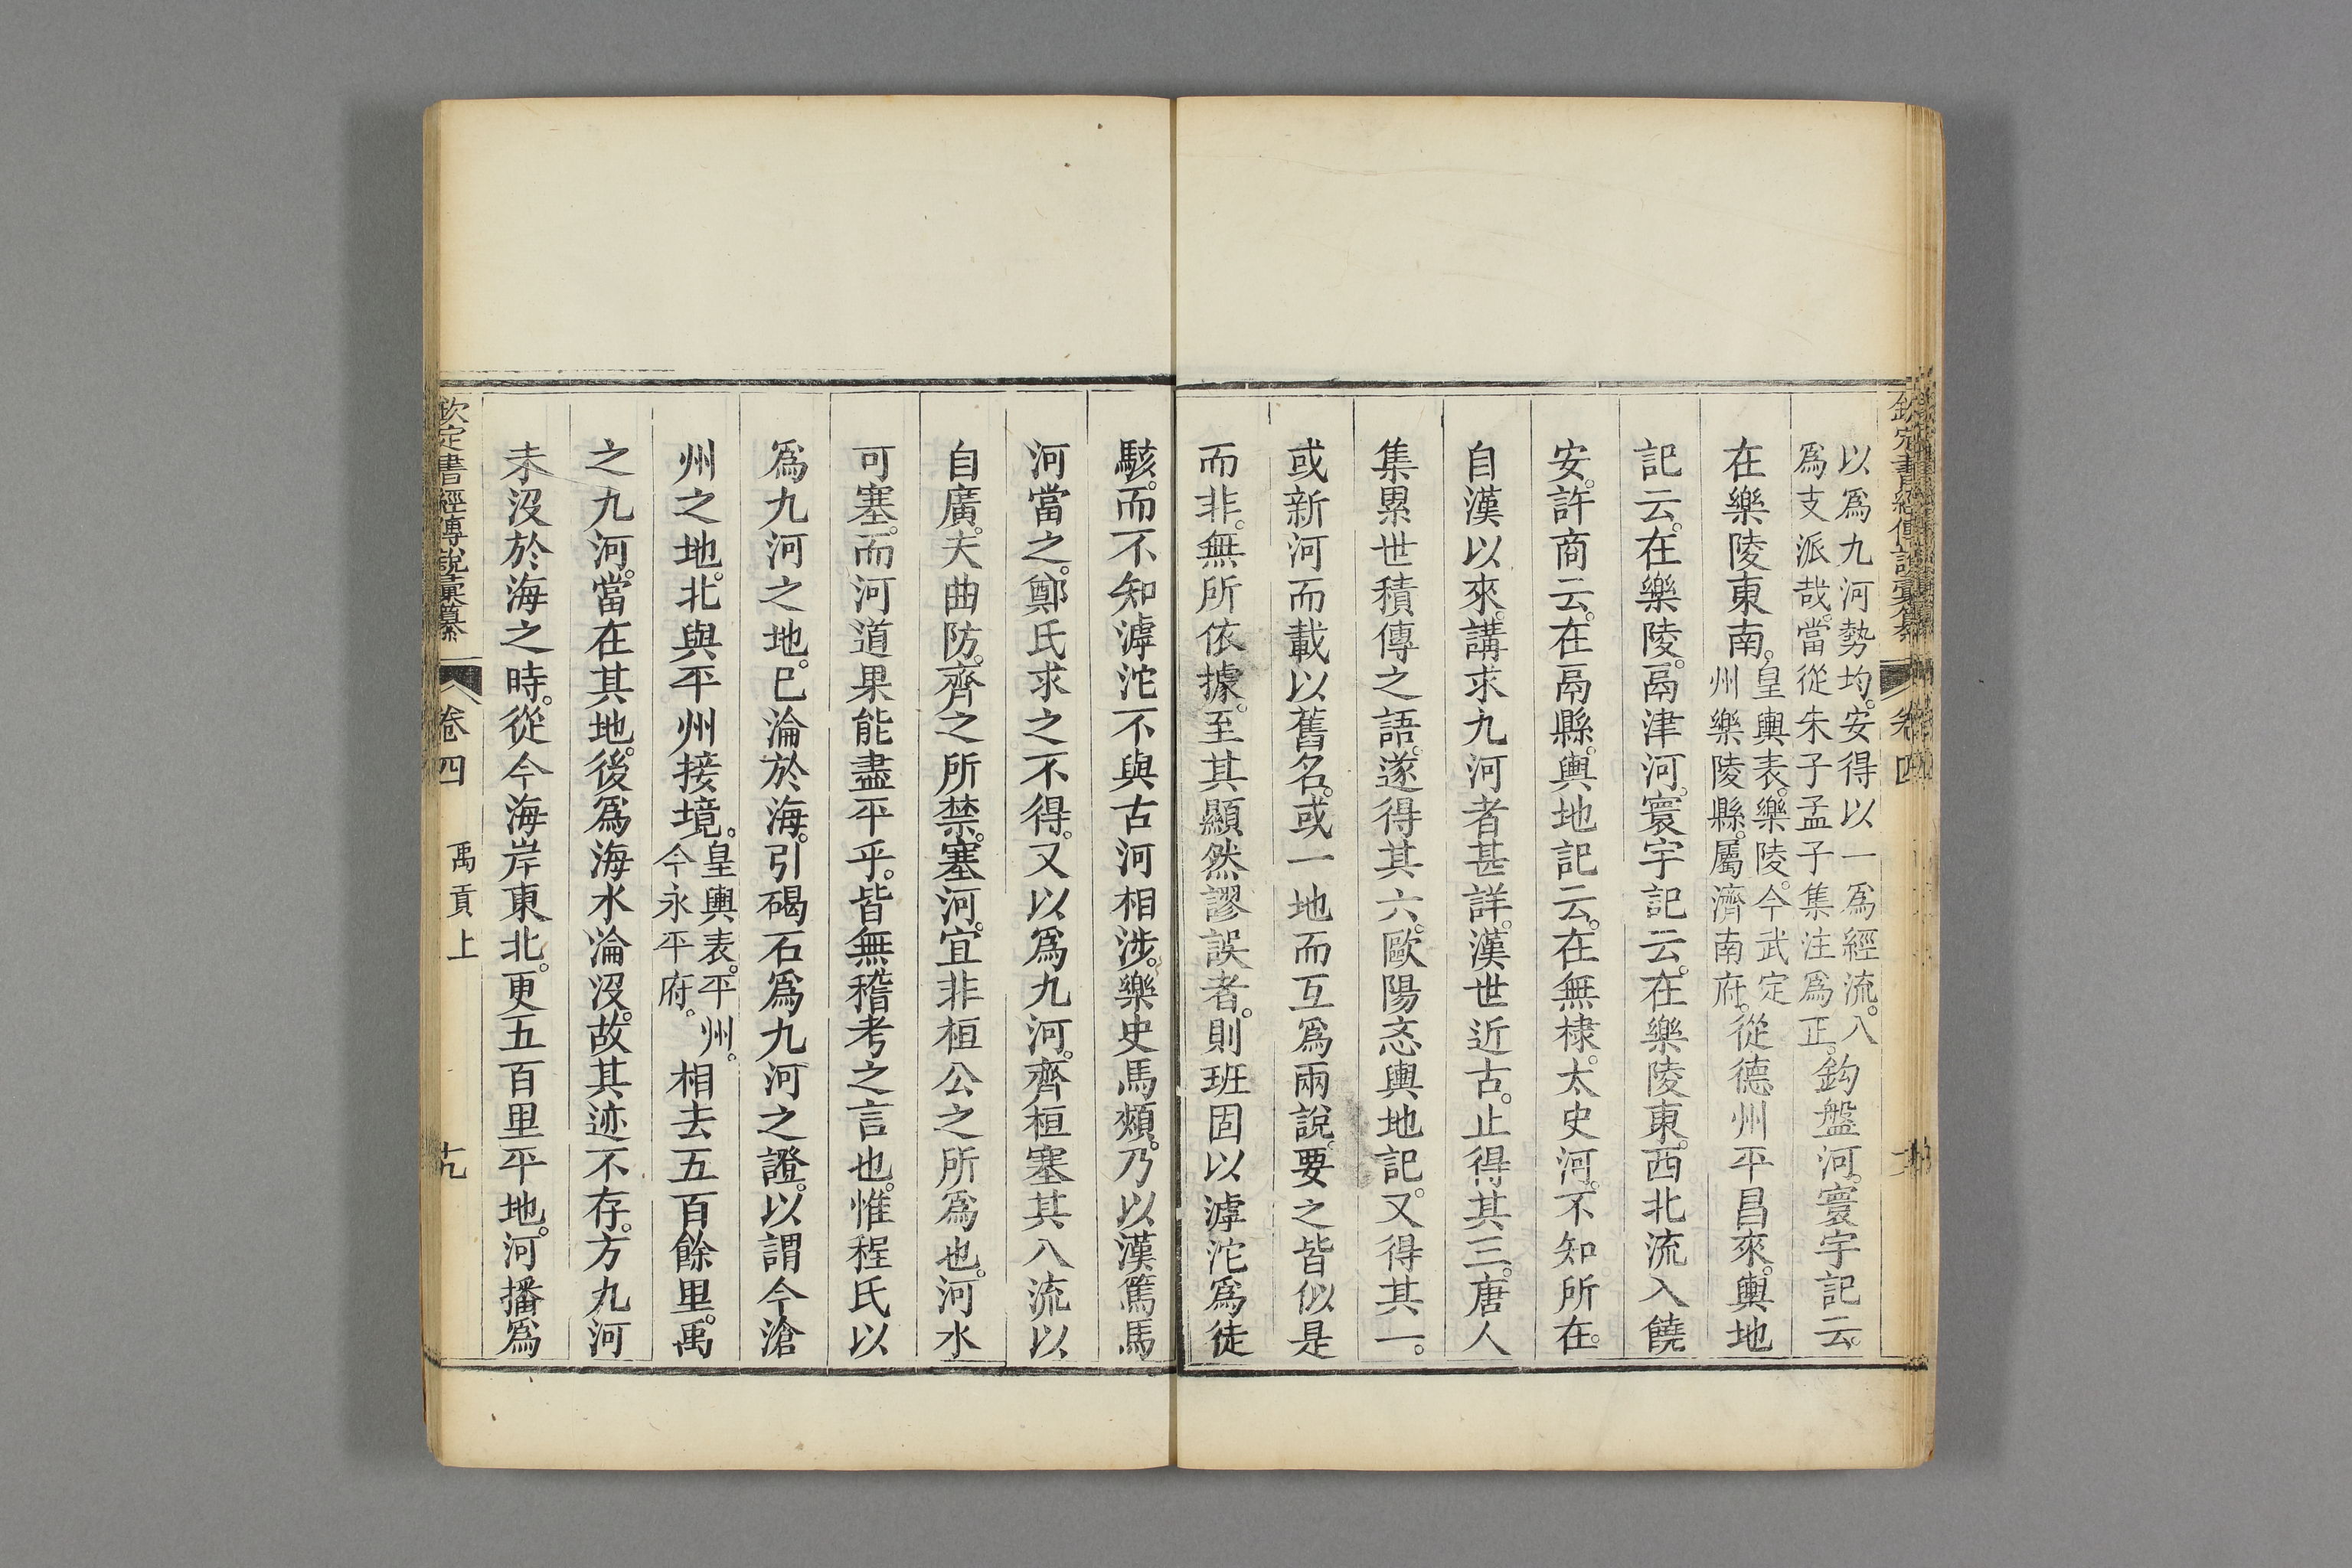 以爲九河勢均。安得以一爲經流。八
爲支派哉。當從朱子孟子集注爲正。
鈎盤河。寰宇記云。
在樂陵東南。
皇輿表。樂陵。今武定
州樂陵縣。屬濟南府。
從德州平昌來。輿地
記云。在樂陵。鬲津河。寰宇記云。在樂陵東。西北流入饒
安。許商云。在鬲縣。輿地記云。在無棣。太史河。不知所在。
自漢以來。講求九河者甚詳。漢世近古。止得其三。唐人
集累世積傳之語。遂得其六。歐陽忞輿地記。又得其一。
或新河而載以舊名。或一地而互爲兩說。要之皆似是
而非。無所依據。至其顯然謬誤者。則班固以滹沱爲徒
駭。而不知滹沱不與古河相涉。樂史馬頰。乃以漢篤馬
河當之。鄭氏求之不得。又以爲九河。齊桓塞其八流以
自廣。夫曲防。齊之所禁。塞河。宜非桓公之所爲也。河水
可塞。而河道果能盡平乎。皆無稽考之言也。惟程氏以
爲九河之地。已淪於海。引碣石爲九河之證。以謂今滄
州之地。北與平州接境。
皇輿表。平州。
今永平府。
相去五百餘里。禹
之九河。當在其地。後爲海水淪沒。故其迹不存。方九河
未沒於海之時。從今海岸東北。更五百里平地。河播爲
欽定書經傳說彙纂
卷四
禹貢上
十九